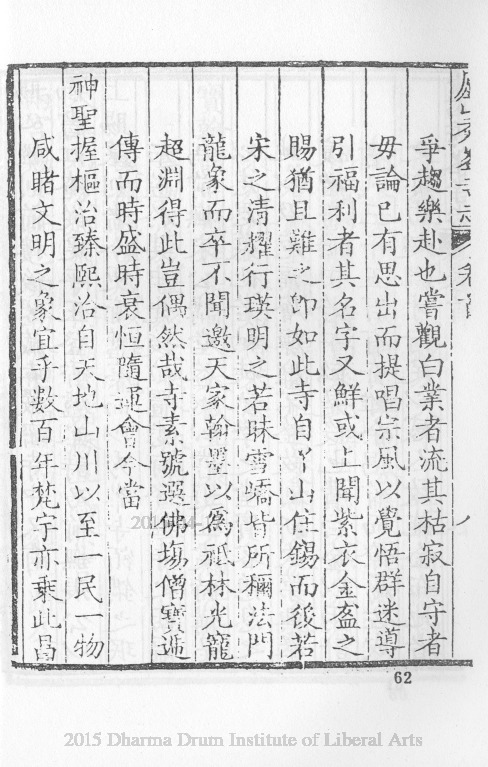 爭趨樂赴也嘗觀白業者流其枯寂自守者
毋論已有思出而提唱宗風以覺悟群迷導
引福利者其名字又鮮或上聞紫衣金盔之
賜猶且難之卽如此寺自丫山住錫而後若
宋之清耀行瑛明之若昧雪嶠皆所稱法門
龍象而卒不聞邀天家翰墨以爲祗林光寵
超淵得此豈偶然哉寺素號選佛場僧寶遞
傳而時盛時衰恒隨運會今當
神聖握樞治臻熙洽自天地山川以至一民一物
咸睹文明之象宜乎數百年梵宇亦乗此昌
卷首
八
62
2015 Dharma Drum Institute of Liberal Arts